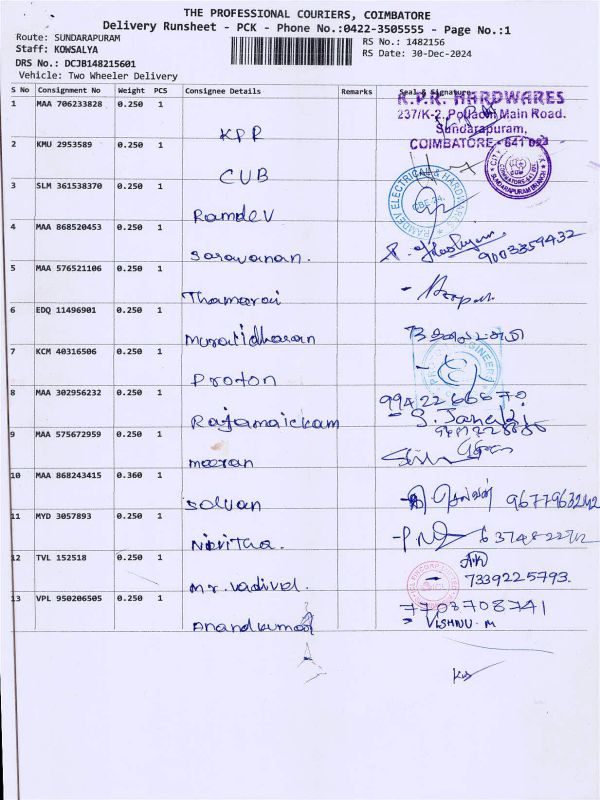 THE PROFESSIONAL COURIERS, COIMBATORE
Delivery Runsheet - PCK - Phone No.:0422-3505555 - Page No.:1
Route: SUNDARAPURAM
RS No.: 1482156
Staff: KOWSALYA
RS Date: 30-Dec-2024
DRS No.: DCJB148215601
Vehicle: Two Wheeler Delivery
S No Consignment No Weight PCS Consignee Details Remarks Seal & Signature
1 MAA 706233828 0.250 1 KPR
K.P.R. HARDWARES
237/K-2, Pollachi Main Road.
Sundarapuram,
COIMBATORE - 641 024
2 KMU 2953589 0.250 1 CUB
SUNDARAPURAM BRANCH
3 SLM 361538370 0.250 1 Ramdev
RAMDEV ELECTRICAL & HARDWARE
CBE-24.
4 MAA 868520453 0.250 1 Saravanan. 9003359432
5 MAA 576521106 0.250 1 Thamarai
6 EDQ 11496901 0.250 1 Muralidharan
7 KCM 40316506 0.250 1 Proton
8 MAA 302956232 0.250 1 Rajamaickam
S. Janaki
9 MAA 575672959 0.250 1 meeran
10 MAA 868243415 0.360 1 Selvan
11 MYD 3057893 0.250 1 Nivitha.
12 TVL 152518 0.250 1 mr. vadivel. 7339225793.
13 VPL 950206505 0.250 1 Anandkumar 7708708741
VISHNU. M